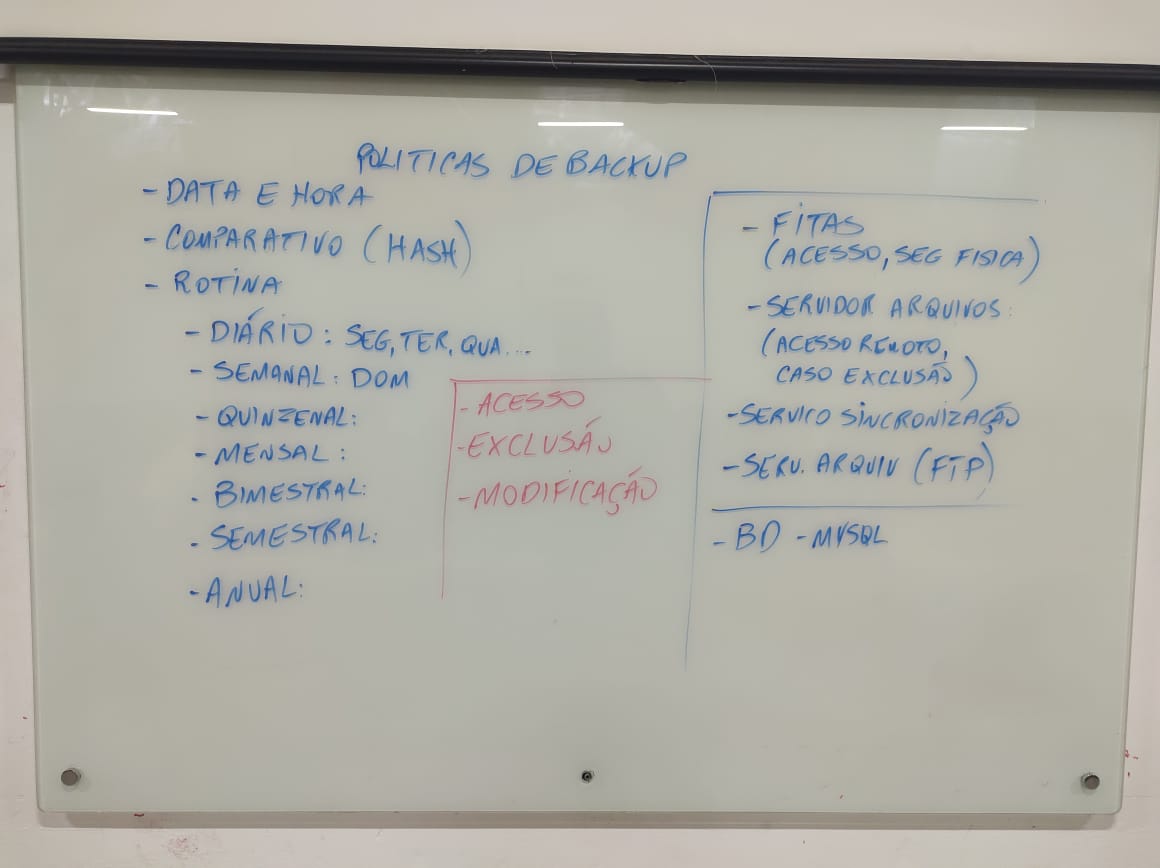 POLITICAS DE BACKUP
- DATA E HORA
- COMPARATIVO (HASH)
- ROTINA
- DIÁRIO: SEG, TER, QUA...
- SEMANAL: DOM
- QUINZENAL:
- MENSAL:
- BIMESTRAL:
- SEMESTRAL:
- ANUAL:
- ACESSO
- EXCLUSÃO
- MODIFICAÇÃO
- FITAS
(ACESSO, SEG FISICA)
- SERVIDOR ARQUIVOS:
(ACESSO REMOTO,
CASO EXCLUSÃO)
- SERVICO SINCRONIZAÇÃO
- SERV. ARQUIV (FTP)
- BD - MYSQL